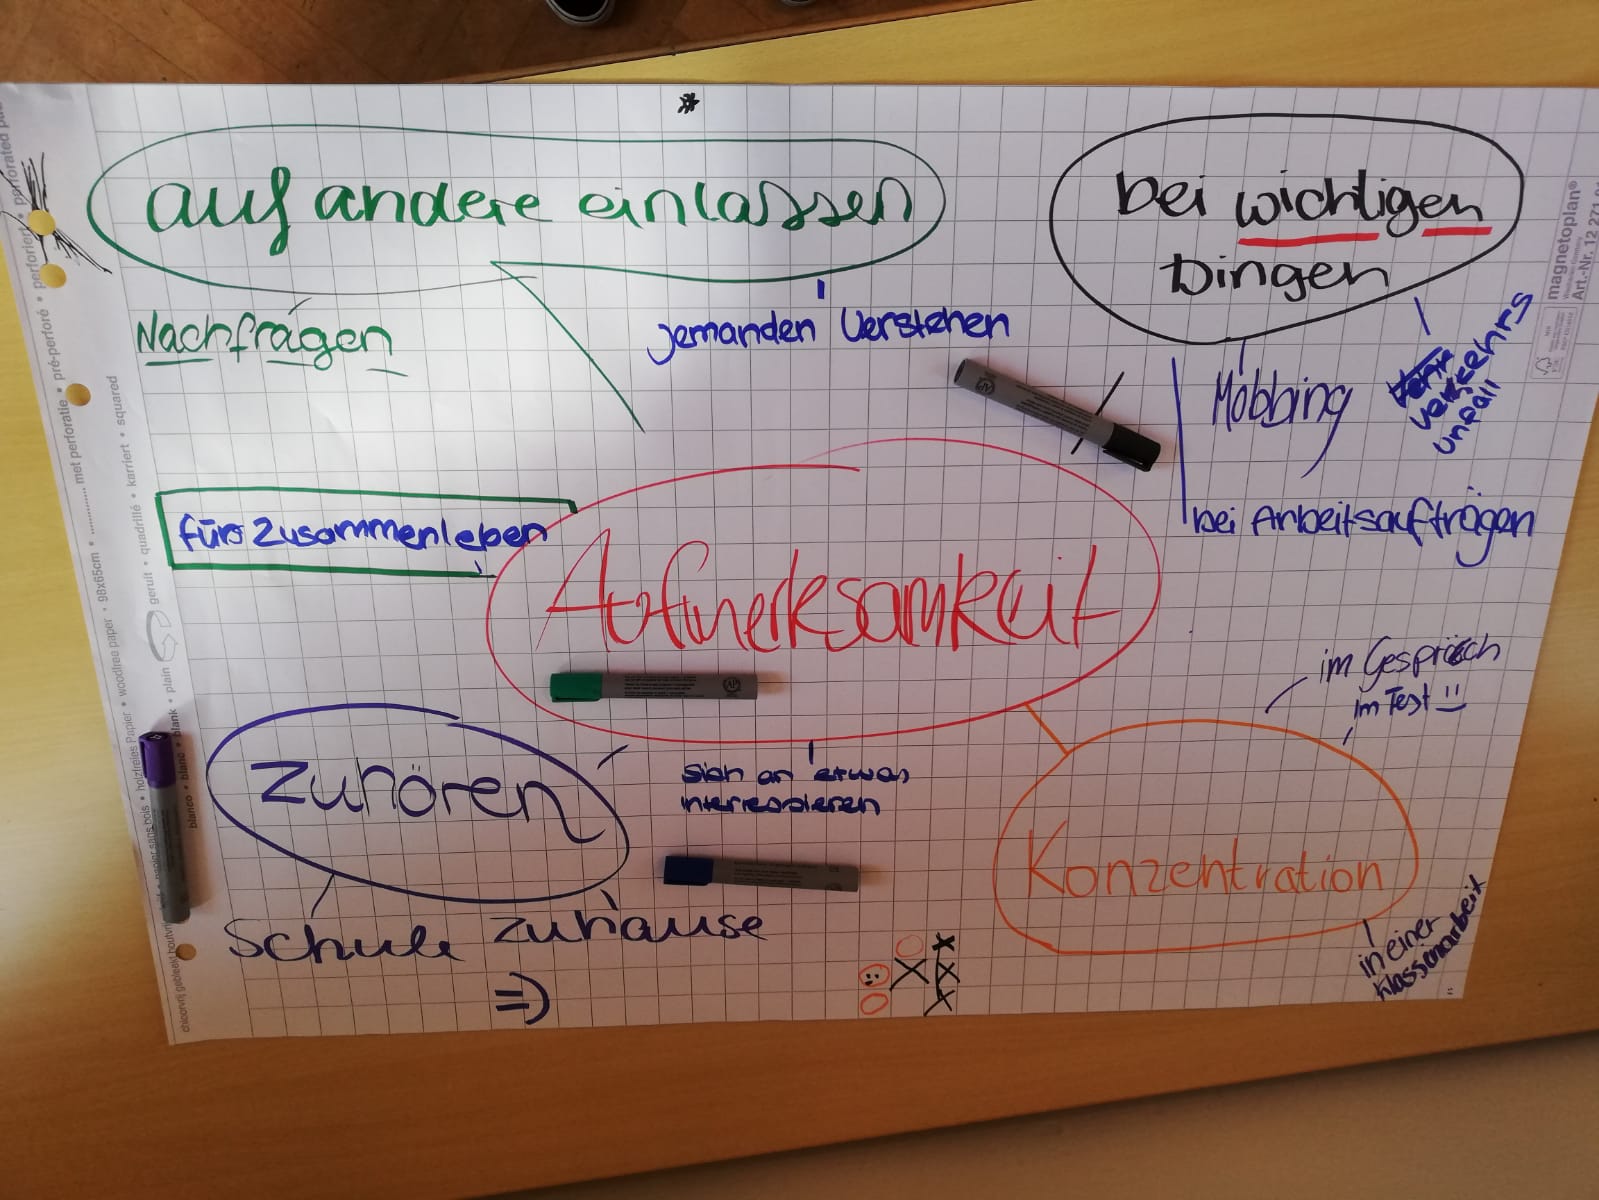 auf andere einlassen
bei wichtigen
Dingen
Nachfragen
jemanden Verstehen
Mobbing
verkehrs
unfall
bei Arbeitsaufträgen
fürs Zusammenleben
Aufmerksamkeit
im Gespräch
im Test
zuhören
sich an etwas
interressieren
Konzentration
Schule
zuhause
=)
in einer
Klassenarbeit
magnetoplan®
98x65cm • holzfreies Papier • woodfree paper
geruit • quadrillé • karriert • squared
blanco • blanc • blank • plain
met perforatie • pré-perforé • perforiert • perforated